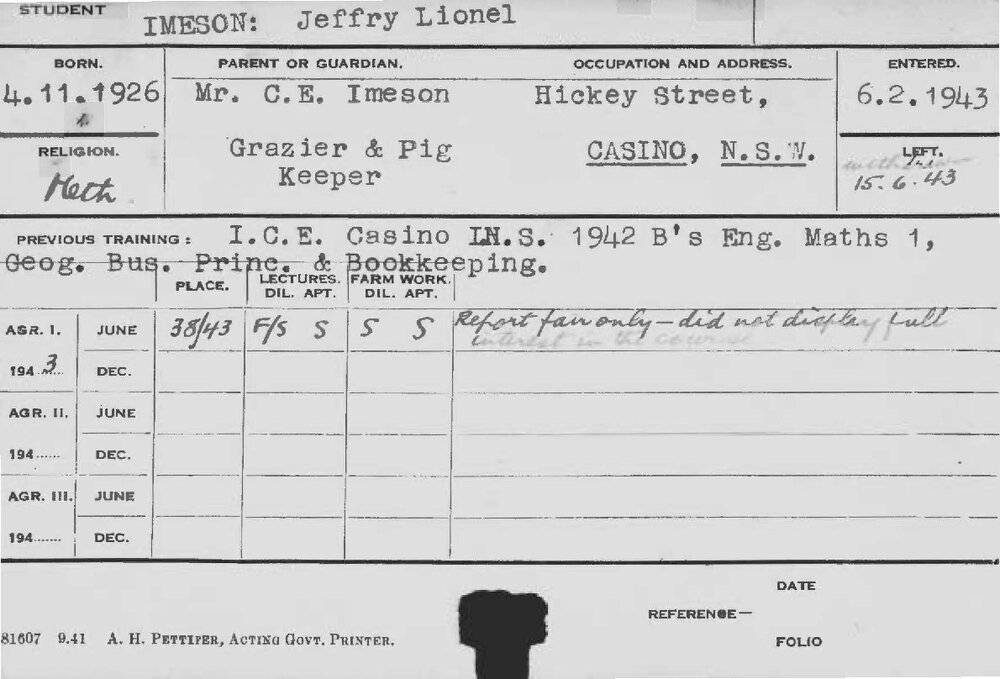 STUDENT IMESON: Jeffry Lionel
BORN. PARENT OR GUARDIAN. OCCUPATION AND ADDRESS. ENTERED.
4.11.1926 Mr. C.E. Imeson Hickey Street, 6.2.1943
RELIGION. Grazier & Pig CASINO, N.S.W. LEFT.
Meth Keeper withdrew 15.6.43
PREVIOUS TRAINING: I.C.E. Casino I.H.S. 1942 B's Eng. Maths 1,
Geog. Bus. Princ. & Bookkeeping.
PLACE. LECTURES. FARM WORK.
DIL. APT. DIL. APT.
AGR. I. JUNE 38/43 F/S S S S Report fair only - did not display full
interest in the course
194 3 DEC.
AGR. II. JUNE
194...... DEC.
AGR. III. JUNE
194....... DEC.
DATE
REFERENCE—
81607 9.41 A. H. PETTIFER, ACTING GOVT. PRINTER. FOLIO